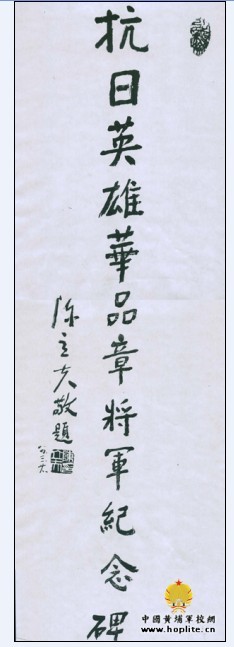 抗日英雄華品章將軍紀念碑
陳立夫敬題
中國黃埔軍校網
www.hoplite.cn